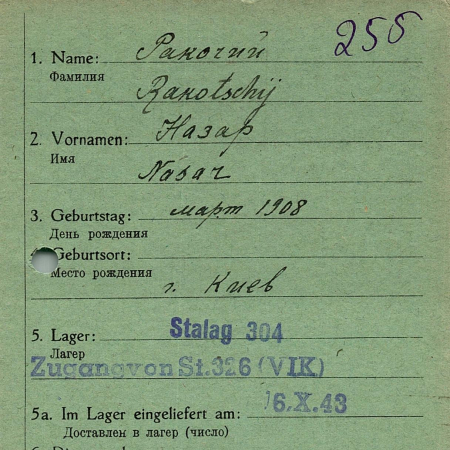 255
1. Name: Ракочий
Фамилия
Rakotschij
2. Vornamen: Назар
Имя
Nasar
3. Geburtstag: март 1908
День рождения
Geburtsort:
Место рождения
г. Киев
5. Lager: Stalag 304
Лагерь
Zugang von St.326 (VIK)
16.X.43
5a. Im Lager eingeliefert am:
Доставлен в лагерь (число)